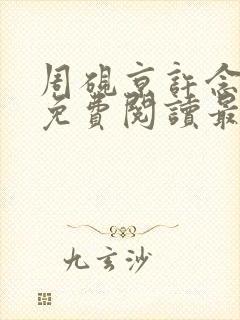 周硯京許念
免費閱讀最
九玄沙